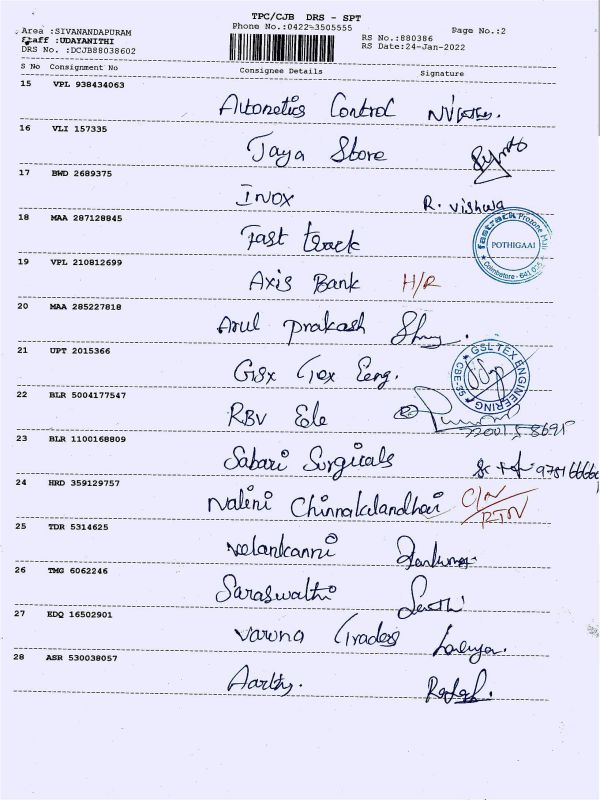 TPC/CJB DRS - SPT
Area :SIVANANDAPURAM Phone No.:0422-3505555 Page No.:2
Staff :UDAYANITHI RS No.:880386
DRS No. :DCJB88038602 RS Date:24-Jan-2022
S No Consignment No Consignee Details Signature
15 VPL 938434063
Autonetics Control
16 VLI 157335
Jaya Store
17 BWD 2689375
Inox R. Vishwa
18 MAA 287128845
Fast track
fastrack
POTHIGAAI
Coimbatore - 641 035
19 VPL 210812699
Axis Bank H/R
20 MAA 285227818
Arul prakash
21 UPT 2015366
Tex Eeng.
GSL TEX ENGINEERING
CBE-35
22 BLR 5004177547
RBV Ele
23 BLR 1100168809
Sabari Surgicals
24 HRD 359129757
Nalini Chinnakulandhai C/N
RTN
25 TDR 5314625
Velankanni
26 TMG 6062246
Saraswathi
27 EDQ 16502901
Varuna Traders
28 ASR 530038057
Aarthy.